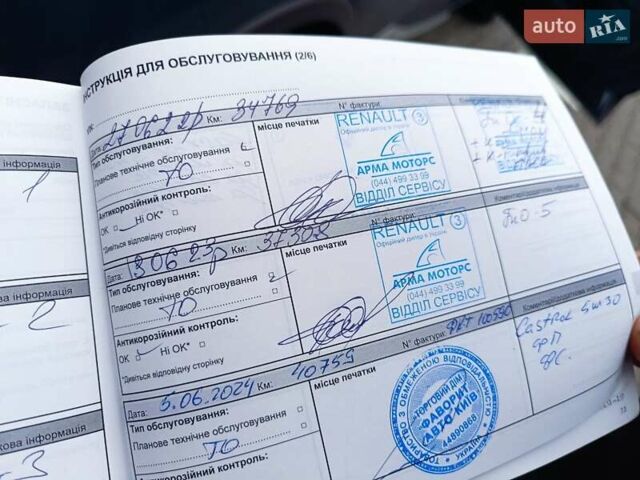 auto RIA .com
ІНСТРУКЦІЯ ДЛЯ ОБСЛУГОВУВАННЯ (2/6)
Дата: 27.06.22р Км: 34769 № фактури:
Тип обслуговування:
Планове технічне обслуговування
ТО
Антикорозійний контроль:
OK Ні OK*
*Дивіться відповідну сторінку
місце печатки
RENAULT 3
Офіційний дилер в Україні
АРМА МОТОРС
(044) 499 33 99
ВІДДІЛ СЕРВІСУ
Дата: 13.06.23р Км: 37308 № фактури:
Тип обслуговування:
Планове технічне обслуговування
ТО
Антикорозійний контроль:
OK Ні OK*
*Дивіться відповідну сторінку
місце печатки
RENAULT 3
Офіційний дилер в Україні
АРМА МОТОРС
(044) 499 33 99
ВІДДІЛ СЕРВІСУ
Коментарі/додаткова інформація
Дата: 5.06.2024 Км: 40755 № фактури:
Тип обслуговування:
Планове технічне обслуговування
ТО
Антикорозійний контроль:
місце печатки
ТОВАРИСТВО З ОБМЕЖЕНОЮ ВІДПОВІДАЛЬНІСТЮ
ТОРГОВИЙ ДІМ
ФАВОРИТ
АВТО КИЇВ
44890868
УКРАЇНА
Коментарі/додаткова інформація
Castrol 5w30
інформація
1
ова інформація
2
кова інформація
3